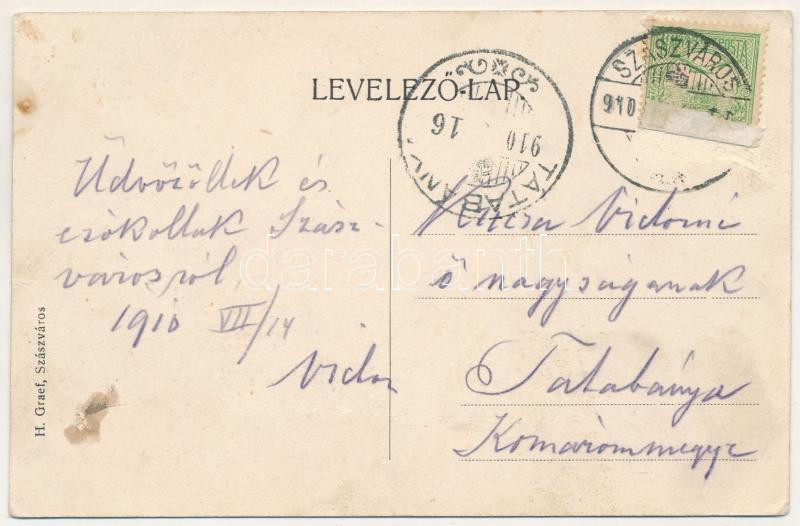 LEVELEZŐ-LAP.
SZÁSZVÁROS
910
TATABÁNYA
910
16
Üdvözöllek és
csókollak Szász-
városról,
1910 VII/14
Vidor
Vidorné
ő nagyságának
Tatabánya
Komárommegye
H. Graef, Szászváros
darabanth